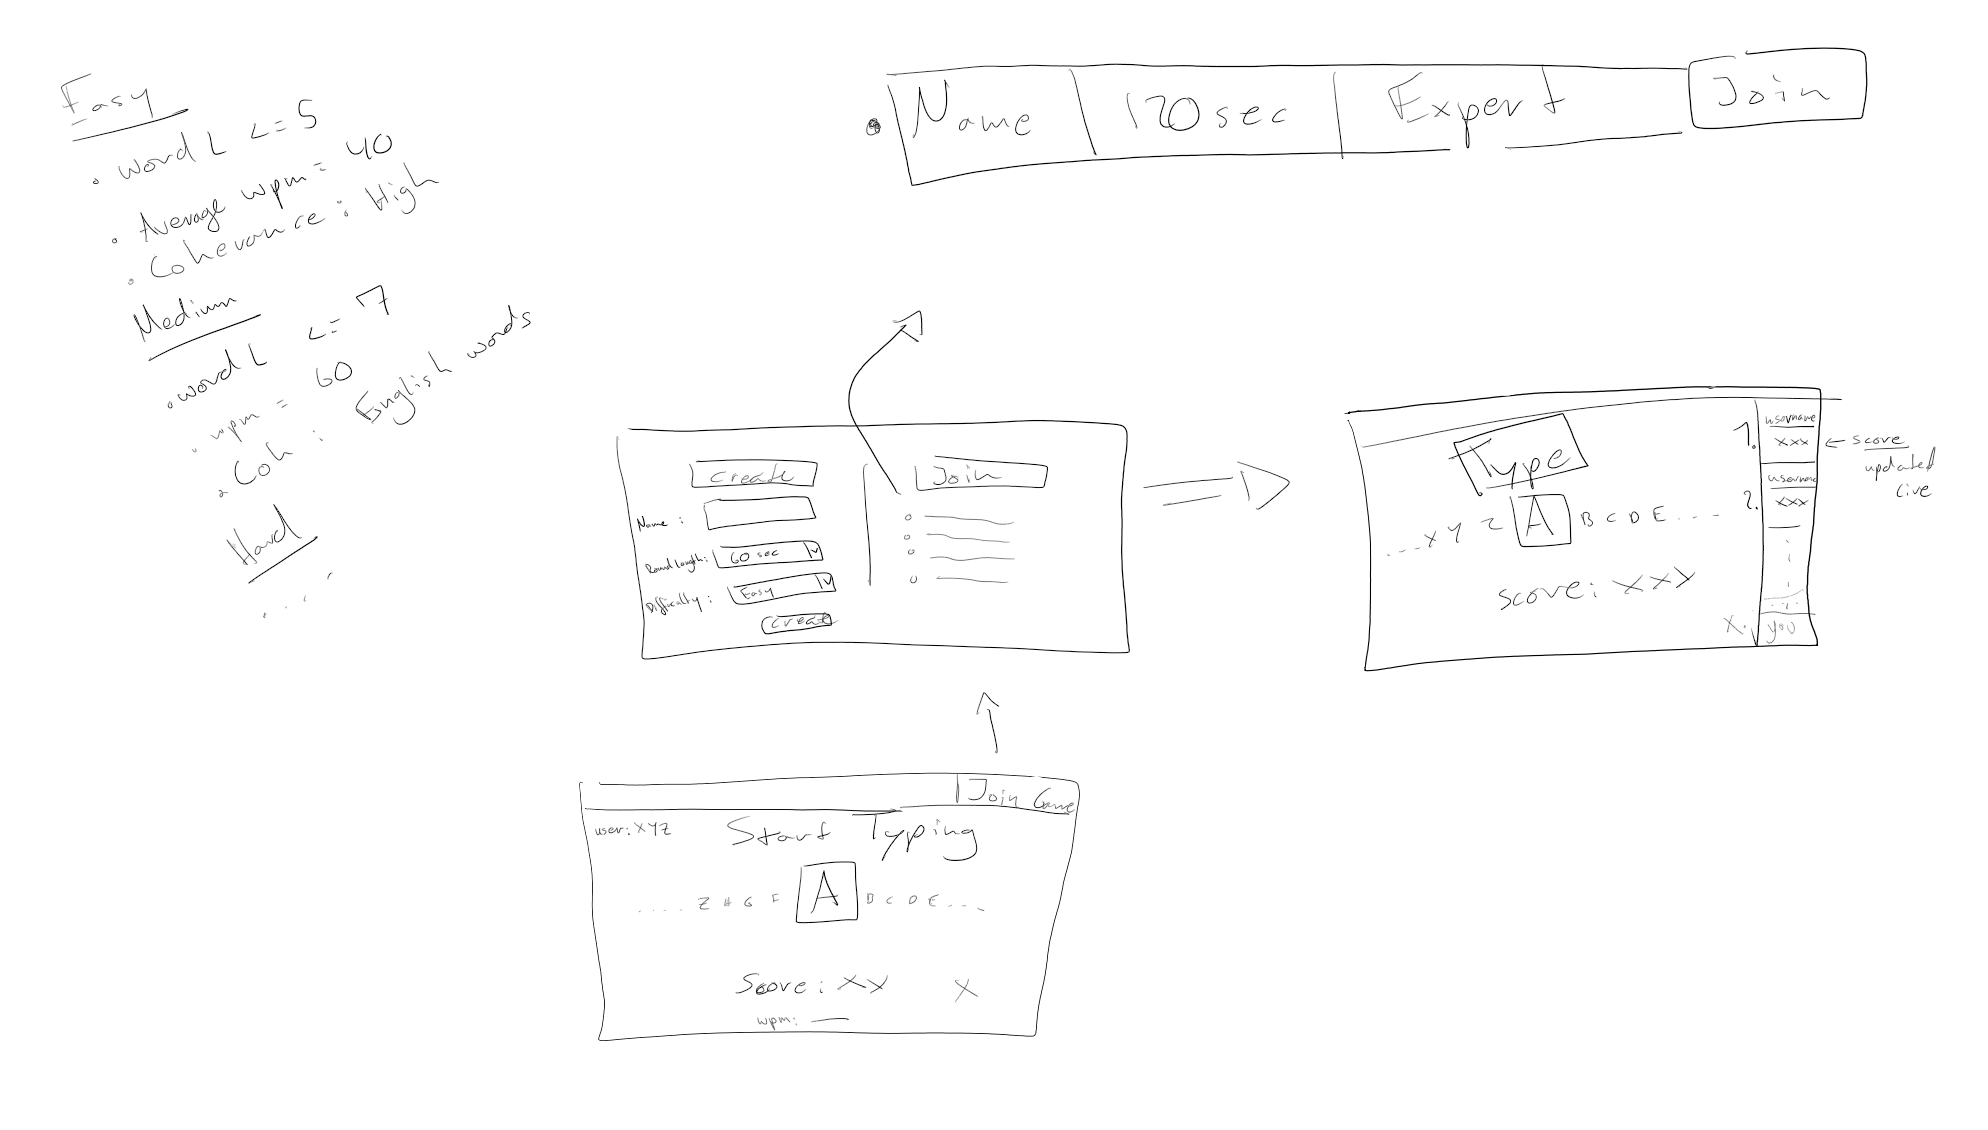 Easy
• word L <= 5
• Average wpm = 40
• Coherance : High
Medium
• word L <= 7
• wpm = 60
• Coh : English words
Hard
. . . .
• Name 120 sec Expert Join
Create
Name :
Round Length: 60 sec v
Difficulty : Easy v
Create
Join
Type
...X Y Z A B C D E....
score: XXX
1. username
xxx ← score
updated
live
2. username
xxx
X. you
Join Game
user: XYZ
Start Typing
.... Z H G F A B C D E...
Score: XX X
wpm: __